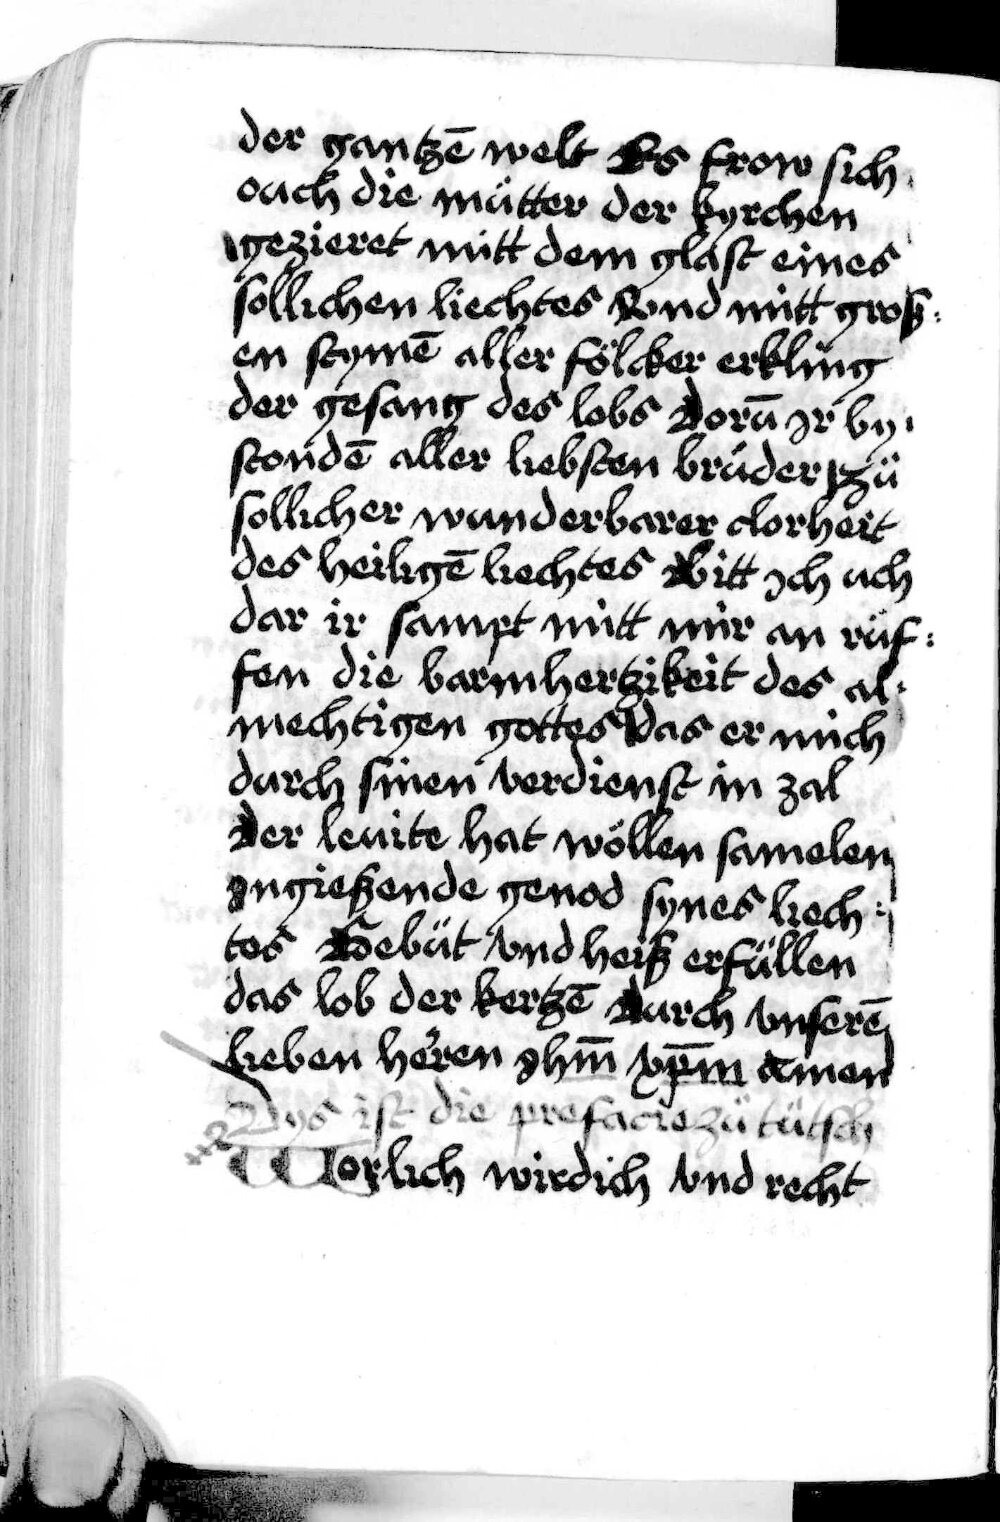 der gantzē welt Es frow sich
ouch die mütter der kyrchen
gezieret mitt dem glast eines
söllichen liechtes Vnd mitt groß:
en stymē aller fölcker erkling
der gesang des lobs Dorū jr by:
stondē aller liebsten brüder zü
sollicher wunderbarer clorheit
des heiligē liechtes Bitt jch uch
dar ir sampt mitt mir an rüf:
fen die barmhertzikeit des al:
mechtigen gottes Das er mich
durch sinen verdienst in zal
Der leuite hat wöllen samelen
jngießende genod synes liech:
tes Gebüt vnd heiß erfüllen
das lob der kertzē Durch vnserē
lieben heren jhm̄ xp̄m amen
Dys ist die prefacie zü tütsch
Worlich wirdich vnd recht